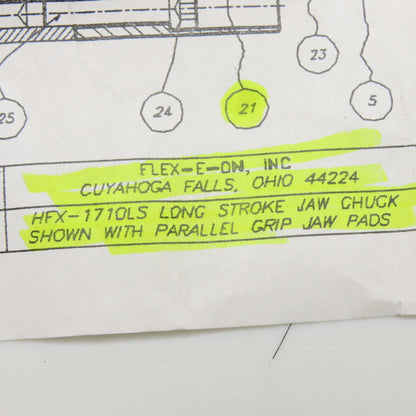 23
5
21
24
25
FLEX-E-ON, INC
CUYAHOGA FALLS, OHIO 44224
HFX-1710LS LONG STROKE JAW CHUCK
SHOWN WITH PARALLEL GRIP JAW PADS